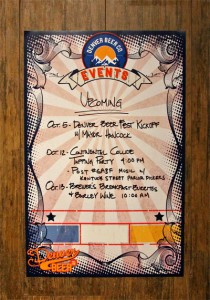 DENVER BEER CO.
EVENTS
UPCOMING
OCT. 5 - DENVER BEER FEST KICKOFF
W/ MAYOR HANCOCK
OCT. 12 - CONTINENTAL COLLIDE
TAPPING PARTY 4:00 PM
- POST #GABF MUSIC W/
KENTUCKY STREET PARLOR PICKERS
OCT. 13 - BREWER'S BREAKFAST BURRITOS
& BARLEY WINE 10:00 AM
DENVER
BEER